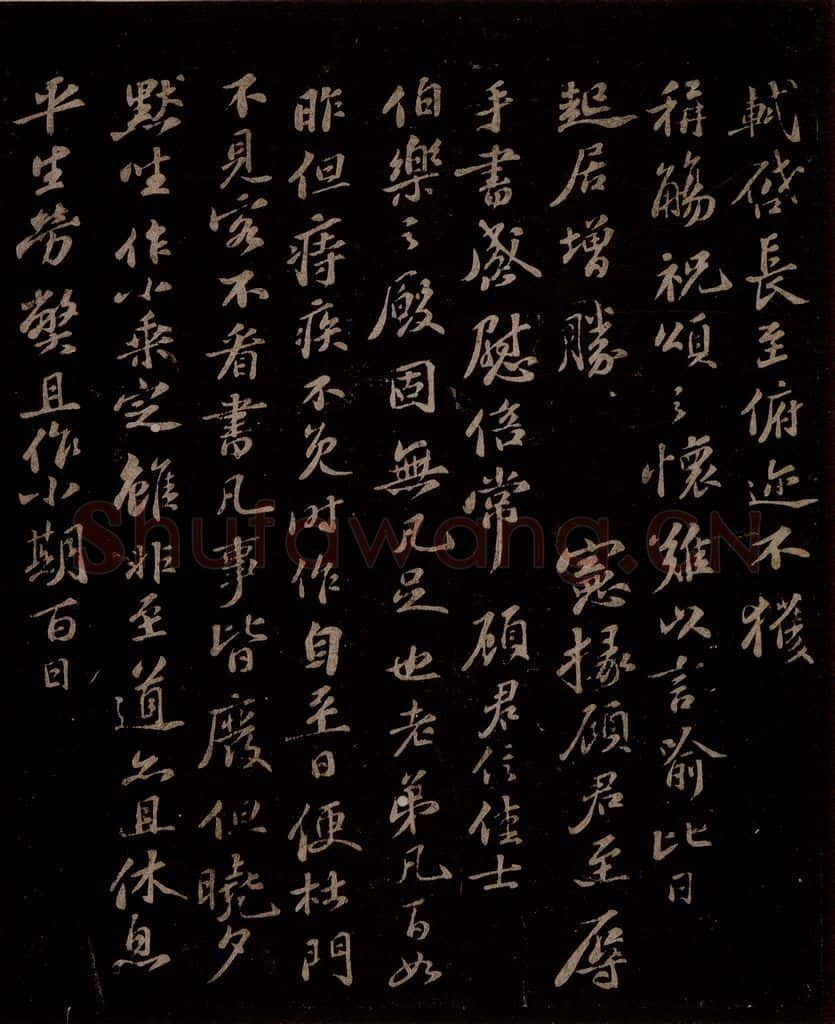 軾啓長至俯迩不獲
稱觴祝頌之懷難以言喻比日
起居增勝 憲掾顧君至辱
手書感慰倍常 顧君信佳士
伯樂之廄固無凡足也老弟凡百如
昨但痔疾不免時作自至日便杜門
不見客不看書凡事皆廢但曉夕
默坐作小乘定雖非至道亦且休息
平生勞弊且作小期百日
Shufawang.CN